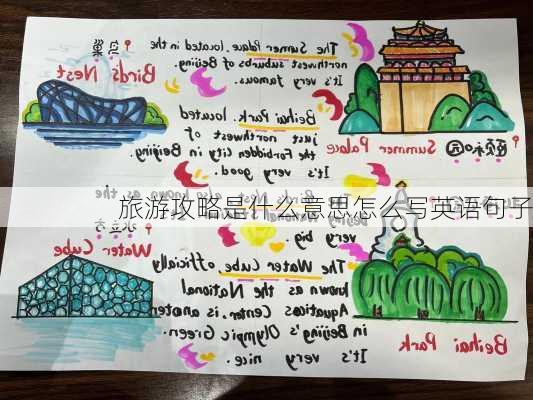 鸟巢
Bird's Nest
The Sumer Palace. located in the
northwest suburbs of Beijing.
It's very famous.
颐和园
Summer Palace
Beihai Park. located
just northwest of
the Forbidden City in Beijing.
It's very good.
also known as the
旅游攻略是什么意思怎么写英语句子
very big.
水立方
Water Cube
The Water Cube. officially
known as the National
Aquatics Center, is
in Beijing's Olympic Green.
It's very nice.
Beihai Park